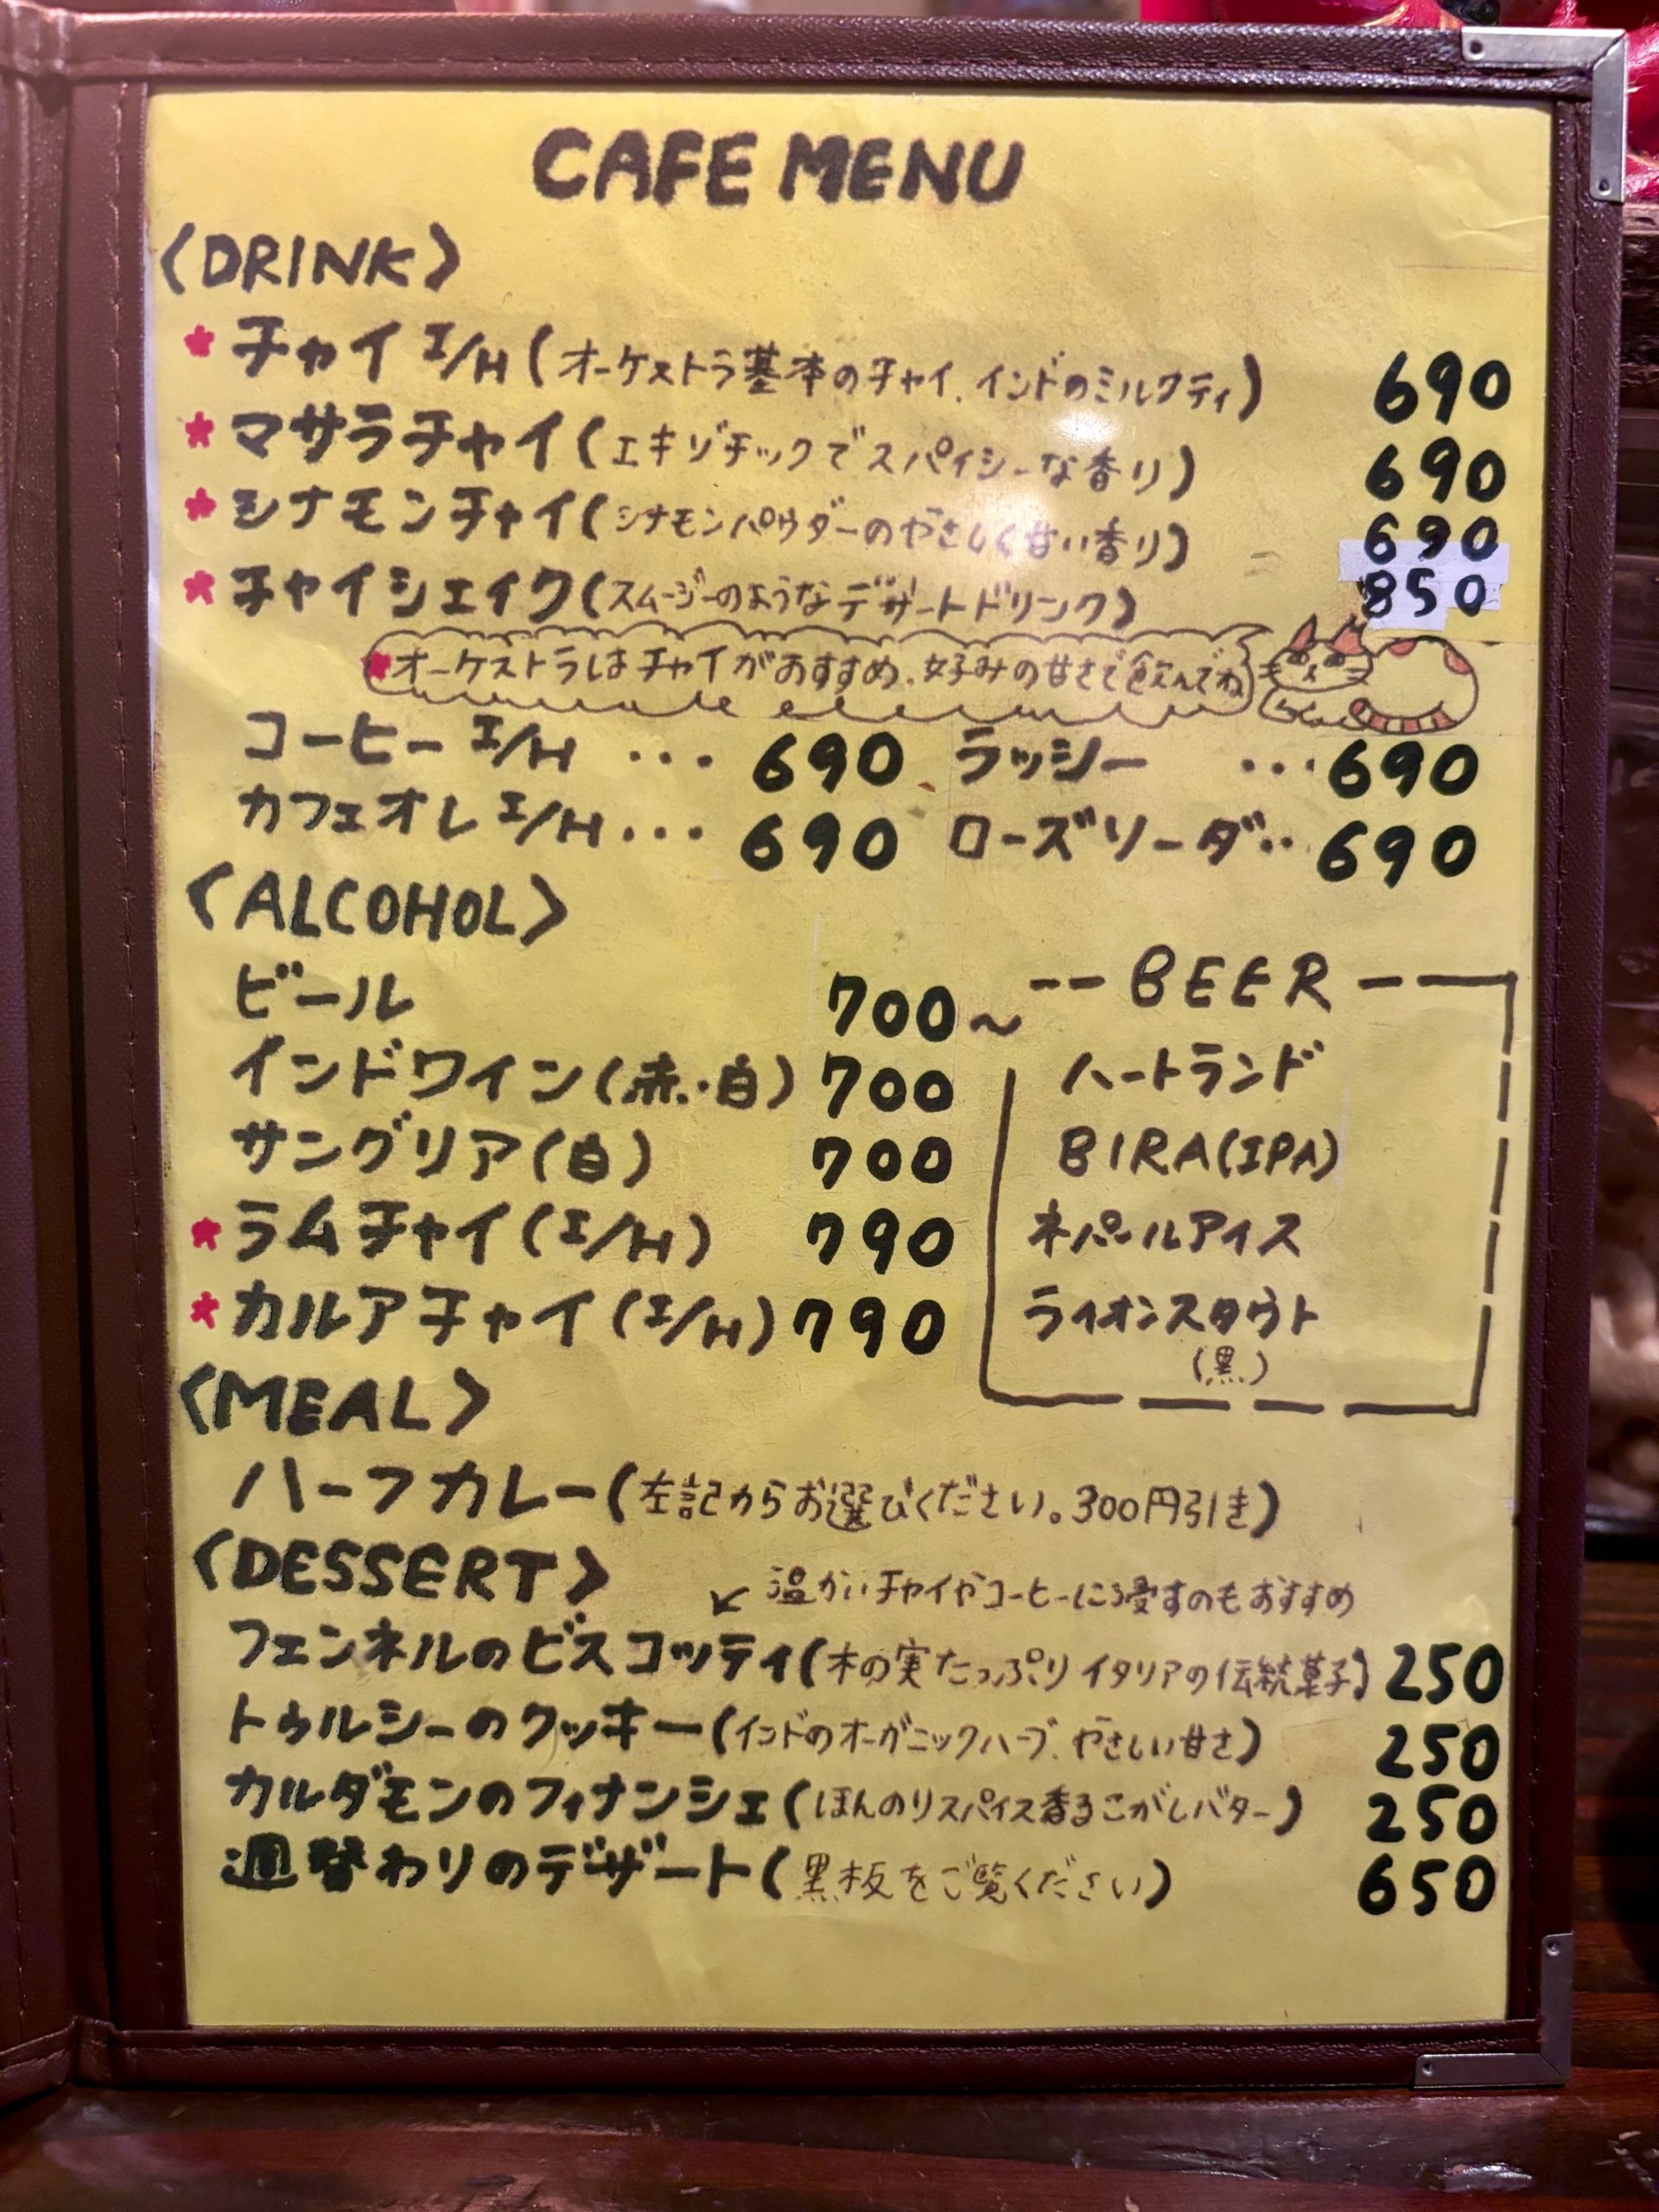 CAFE MENU
〈DRINK〉
* チャイ I/H (オーケストラ基本のチャイ、インドのミルクティ) 690
* マサラチャイ (エキゾチックでスパイシーな香り) 690
* シナモンチャイ (シナモンパウダーのやさしく甘い香り) 690
* チャイシェイク (スムージーのようなデザートドリンク) 850
* オーケストラはチャイがおすすめ、好みの甘さで飲んでね
コーヒー I/H ... 690 ラッシー ... 690
カフェオレ I/H ... 690 ローズソーダ .. 690
〈ALCOHOL〉
ビール 700～
インドワイン (赤・白) 700
サングリア (白) 700
* ラムチャイ (I/H) 790
* カルアチャイ (I/H) 790
BEER
ハートランド
BIRA (IPA)
ネパールアイス
ライオンスタウト
(黒)
〈MEAL〉
ハーフカレー (左記からお選びください。300円引き)
〈DESSERT〉
↙ 温かいチャイやコーヒーに浸すのもおすすめ
フェンネルのビスコッティ (木の実たっぷりイタリアの伝統菓子) 250
トゥルシーのクッキー (インドのオーガニックハーブ、やさしい甘さ) 250
カルダモンのフィナンシェ (ほんのりスパイス香るこがしバター) 250
週替わりのデザート (黒板をご覧ください) 650